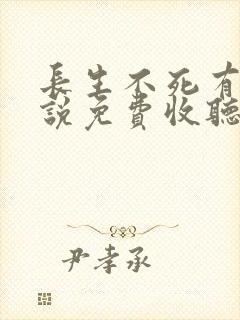 長生不死有
說免費收聽
尹孝承